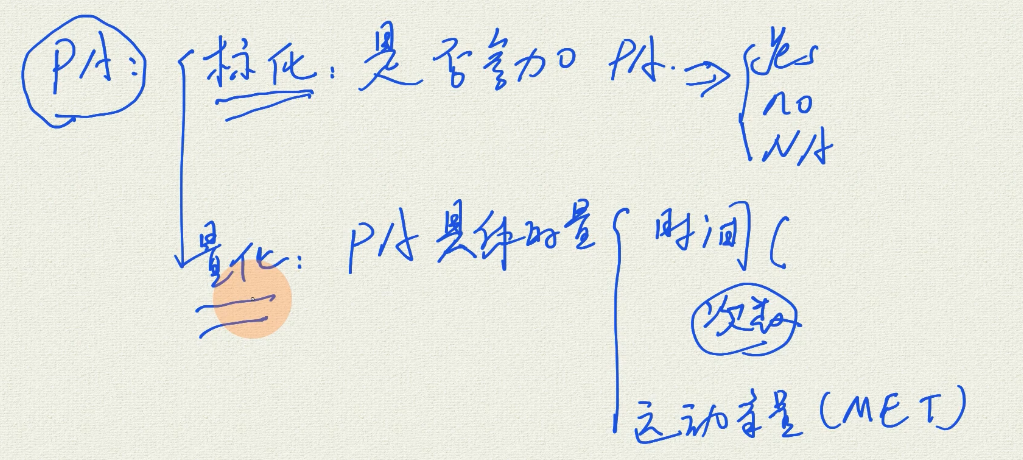 PA: 标化: 是否参加 PA. ⇒ yes
no
NA
量化: PA具体的量 时间 (
次数
运动当量 (MET)